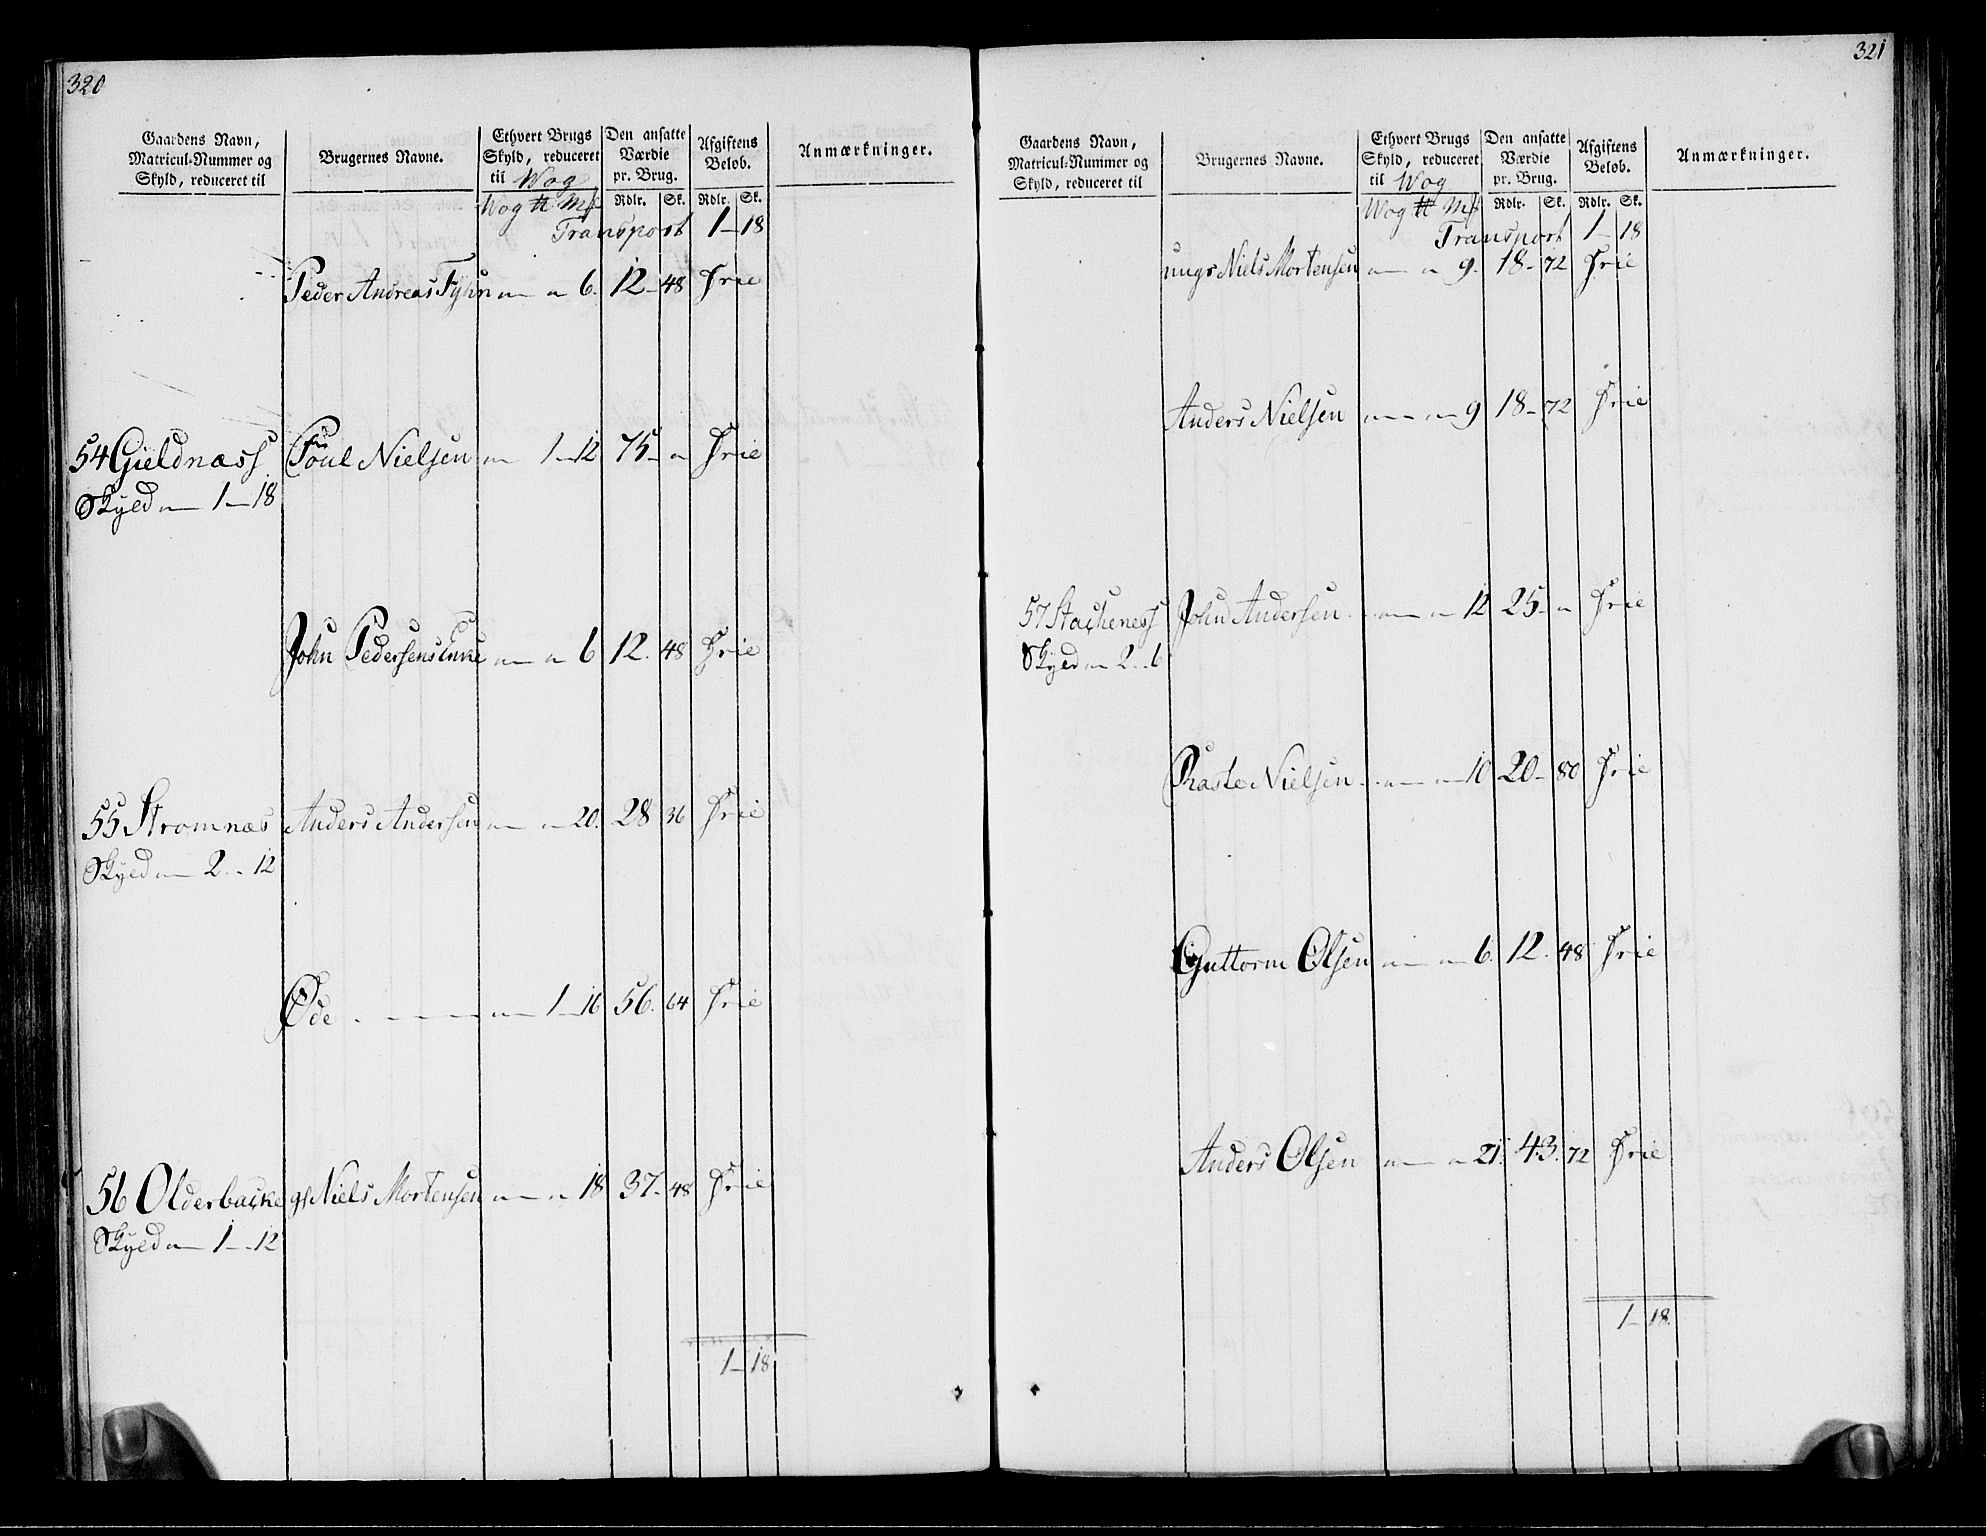 320
Gaardens Navn, Matricul-Nummer og Skyld, reduceret til
Brugernes Navne.
Ethvert Brugs Skyld, reduceret til Wog
Den ansatte Værdie pr. Brug.
Afgiftens Beløb.
Anmærkninger.
Wog ℔ Mk Rdlr. Sk. Rdlr. Sk.
Transport 1 - 18
Peder Andreas Tyhn 6. 12 - 48 Frie
54 Gieldnæss Poul Nielsen 1 - 12 75 - Frie
Skyld 1 - 18
John Pedersens Enke 6 12. 48 Frie
55 Stromnæs Anders Andersen 20. 28 36 Frie
Skyld 2 .. 12
Øde 1 - 16 56. 64 Frie
56 Olderbacke gl Niels Mortensen 18 37 - 48 Frie
Skyld 1 - 12
1 - 18
321
Gaardens Navn, Matricul-Nummer og Skyld, reduceret til
Brugernes Navne.
Ethvert Brugs Skyld, reduceret til Wog
Den ansatte Værdie pr. Brug.
Afgiftens Beløb.
Anmærkninger.
Wog ℔ Mk Rdlr. Sk. Rdlr. Sk.
Transport 1 - 18
ungs Niels Mortensen 9. 18 - 72 Frie
Anders Nielsen 9 18 - 72 Frie
57 Stacheness John Andersen 12 25 - Frie
Skyld 2 .. 6
Raste Nielsen 10 20 - 80 Frie
Guttorm Olsen 6. 12. 48 Frie
Anders Olsen 21. 43. 72 Frie
1 - 18.